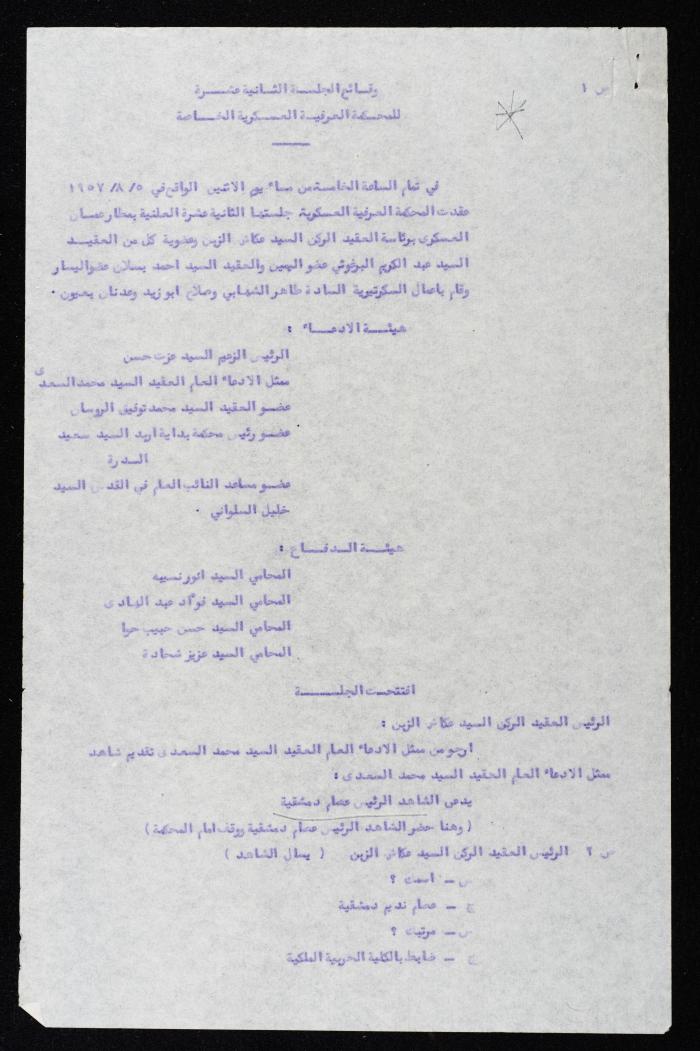 ص ١
وقائع الجلسة الثانية عشرة
للمحكمة العرفية العسكرية الخاصة
في تمام الساعة الخامسة من مساء يوم الاثنين الواقع في ٥ /٨ /١٩٥٧
عقدت المحكمة العرفية العسكرية جلستها الثانية عشرة العلنية بمطار عمان
العسكرى برئاسة العقيد الركن السيد عكاش الزبن وعضوية كل من العقيد
السيد عبد الكريم البرغوثي عضو اليمين والعقيد السيد احمد يسلان عضو اليسار
وقام باعمال السكرتيرية السادة طاهر الشهابي وصلاح ابو زيد وعدنان بعيون .
هيئة الادعاء :
الرئيس الزعيم السيد عزت حسن
ممثل الادعاء العام العقيد السيد محمد السعدى
عضو العقيد السيد محمد توفيق الروسان
عضو رئيس محكمة بداية اربد السيد سعيد
الدرة
عضو مساعد النائب العام في القدس السيد
خليل السلواني .
هيئة الدفاع :
المحامي السيد انور نسيبه
المحامي السيد فوءاد عبد الهادى
المحامي السيد حسن حبيب حوا
المحامي السيد عزيز شحادة
افتتحت الجلسة
الرئيس العقيد الركن السيد عكاش الزبن :
ارجو من ممثل الادعاء العام العقيد السيد محمد السعدى تقديم شاهد
ممثل الادعاء العام العقيد السيد محمد السعدى :
يدعى الشاهد الرئيس عصام دمشقية
( وهنا حضر الشاهد الرئيس عصام دمشقية ووقف امام المحكمة )
س ؟ الرئيس العقيد الركن السيد عكاش الزبن ( يسال الشاهد )
س ـ اسمك ؟
ج ـ عصام نديم دمشقية
س ـ مرتبك ؟
ج ـ ضابط بالكلية الحربية الملكية